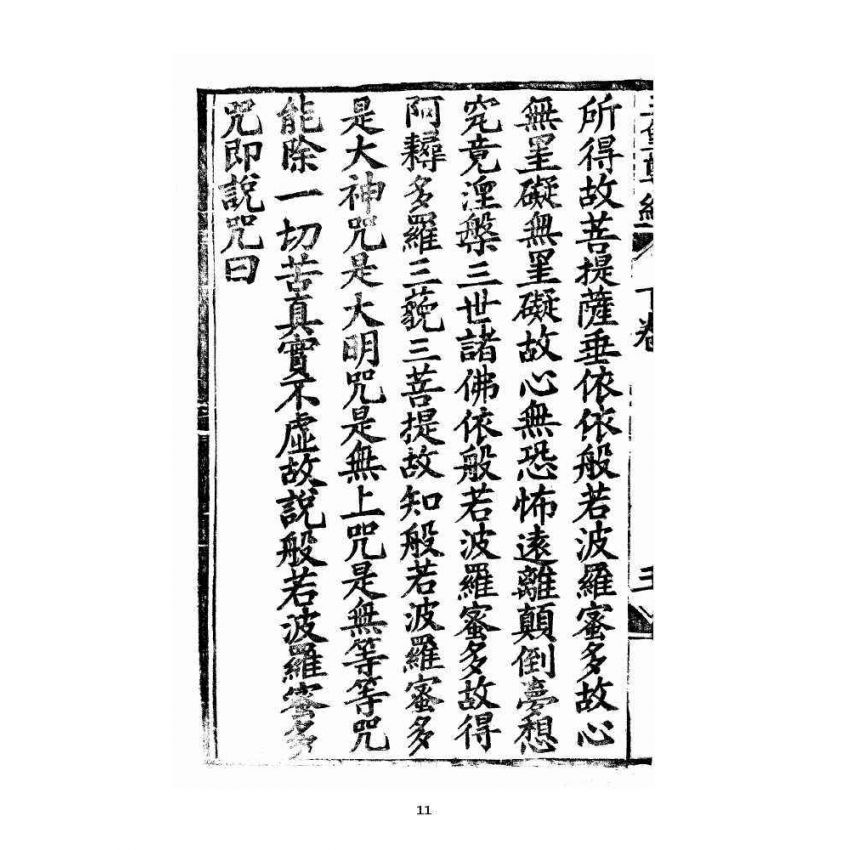 下卷
所得故菩提薩垂依依般若波羅蜜多故心
無罣礙無罣礙故心無恐怖遠離顛倒夢想
究竟涅槃三世諸佛依般若波羅蜜多故得
阿耨多羅三藐三菩提故知般若波羅蜜多
是大神咒是大明咒是無上咒是無等等咒
能除一切苦真實不虛故說般若波羅蜜多
咒即說咒曰
11